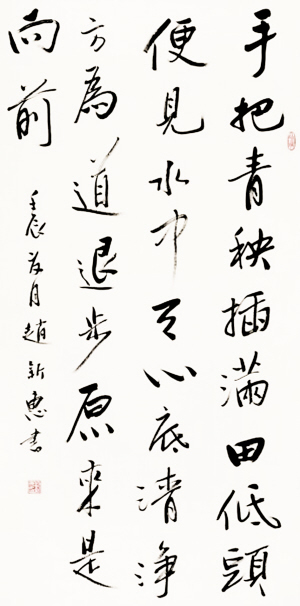 手把青秧插滿田低頭
便見水中天心底清淨
方為道退步原來是
向前
壬辰為月趙新惠書